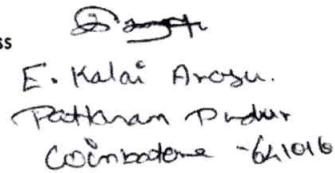 ss
E. Kalai Arasu.
Pattanam Pudur
Coimbatore - 641016